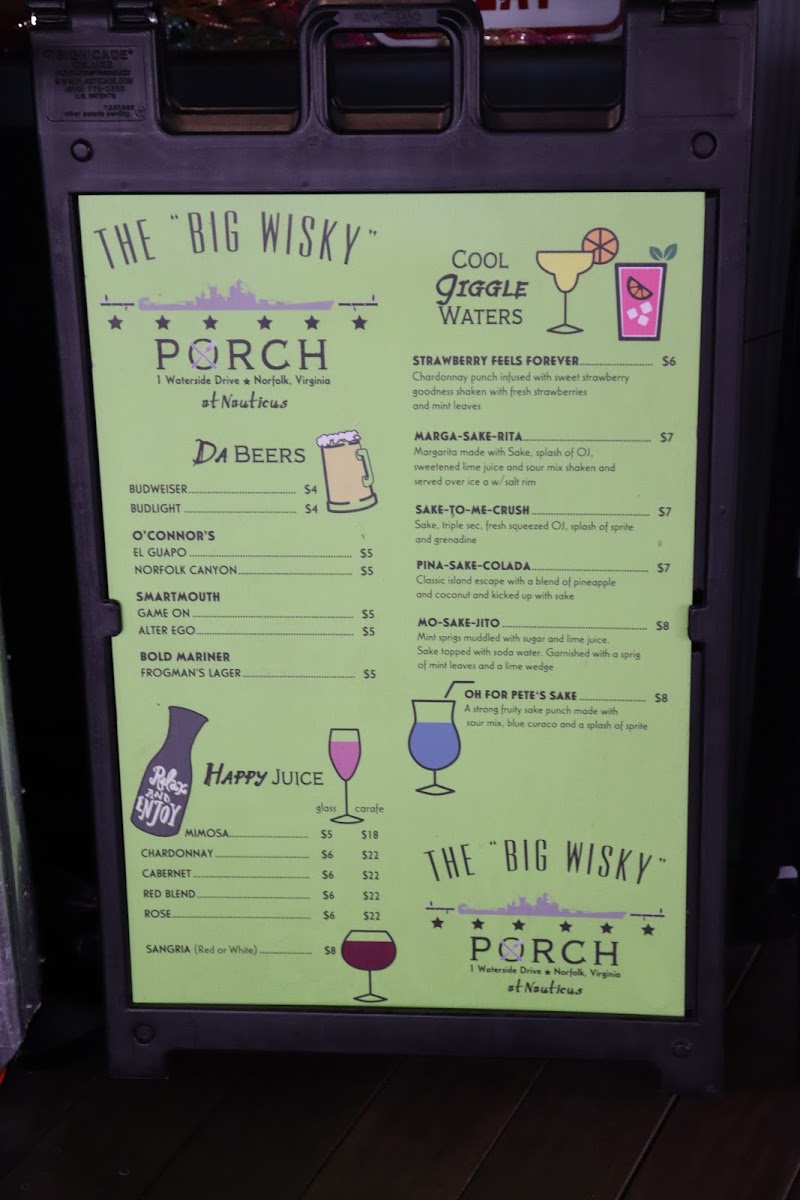 SIGNICADE®
DELUXE
WWW.PLASTICADE.COM
U.S. PATENTS
other patents pending
THE "BIG WISKY"
PORCH
1 Waterside Drive ★ Norfolk, Virginia
at Nauticus
DA BEERS
BUDWEISER $4
BUDLIGHT $4
O'CONNOR'S
EL GUAPO $5
NORFOLK CANYON $5
SMARTMOUTH
GAME ON $5
ALTER EGO $5
BOLD MARINER
FROGMAN'S LAGER $5
Relax
AND
ENJOY
HAPPY JUICE
glass carafe
MIMOSA $5 $18
CHARDONNAY $6 $22
CABERNET $6 $22
RED BLEND $6 $22
ROSE $6 $22
SANGRIA (Red or White) $8
COOL
GIGGLE
WATERS
STRAWBERRY FEELS FOREVER $6
Chardonnay punch infused with sweet strawberry
goodness shaken with fresh strawberries
and mint leaves
MARGA-SAKE-RITA $7
Margarita made with Sake, splash of OJ,
sweetened lime juice and sour mix shaken and
served over ice a w/ salt rim
SAKE-TO-ME-CRUSH $7
Sake, triple sec, fresh squeezed OJ, splash of sprite
and grenadine
PINA-SAKE-COLADA $7
Classic island escape with a blend of pineapple
and coconut and kicked up with sake
MO-SAKE-JITO $8
Mint sprigs muddled with sugar and lime juice.
Sake topped with soda water. Garnished with a sprig
of mint leaves and a lime wedge
OH FOR PETE'S SAKE $8
A strong fruity sake punch made with
sour mix, blue curaco and a splash of sprite
THE "BIG WISKY"
PORCH
1 Waterside Drive ★ Norfolk, Virginia
at Nauticus